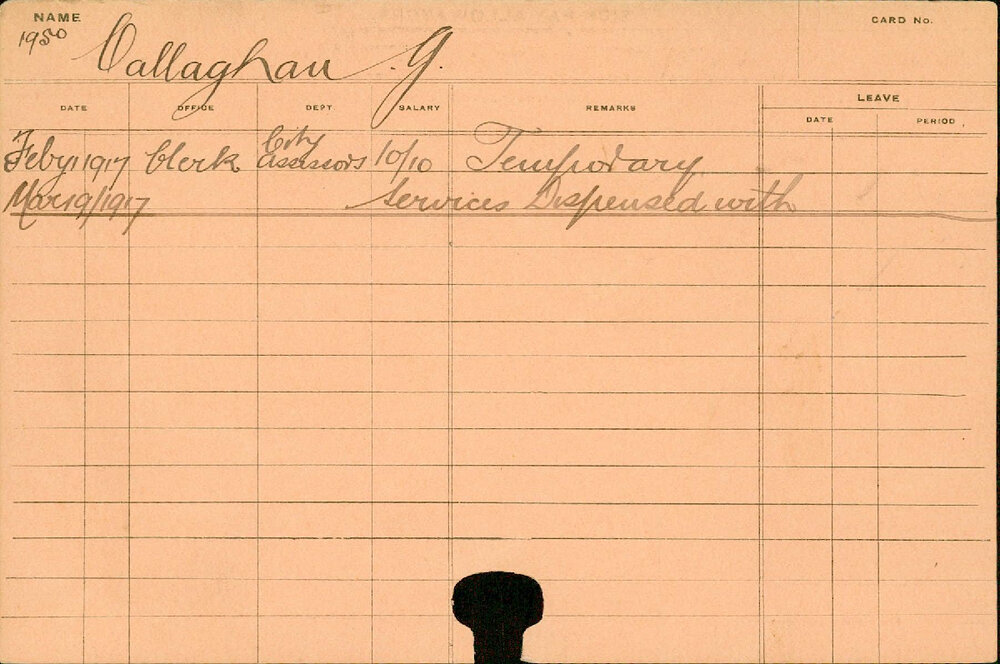 NAME
CARD No.
1950
Callaghan G.
DATE OFFICE DEPT. SALARY REMARKS LEAVE
DATE PERIOD
Feby 1917 Clerk City Assessors 10/10 Temporary
Mar 19/1917 Services Dispensed with